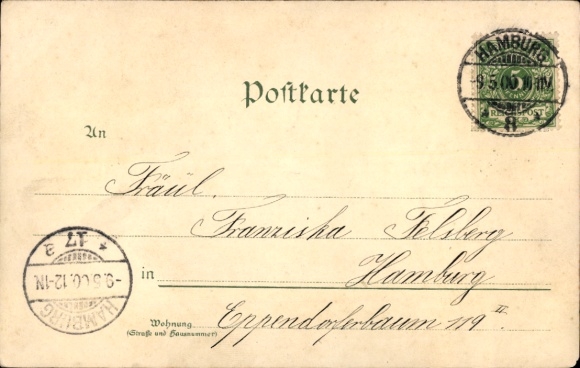 Postkarte
HAMBURG
-9.5.00
8
5
REICHSPOST
An
Fräul.
Franziska Felsberg
in Hamburg
Wohnung Eppendorferbaum 119 II.
(Straße und Hausnummer)
HAMBURG
-9.5.00.12-1N.
* 17 a